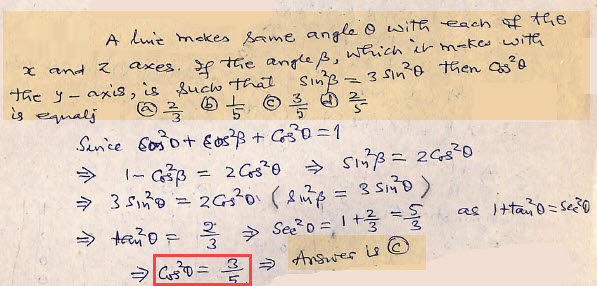 A line makes same angle θ with each of the
x and z axes. If the angle β, which it makes with
the y-axis, is such that sin²β = 3 sin²θ then Cos²θ
is equals (a) 2/3 (b) 1/5 (c) 3/5 (d) 2/5
Since Cos²θ + Cos²β + Cos²θ = 1
⇒ 1 - Cos²β = 2 Cos²θ ⇒ Sin²β = 2 Cos²θ
⇒ 3 Sin²θ = 2 Cos²θ (Sin²β = 3 Sin²θ)
⇒ tan²θ = 2/3 ⇒ Sec²θ = 1 + 2/3 = 5/3 as 1 + tan²θ = Sec²θ
⇒ Cos²θ = 3/5 ⇒ Answer is (c)